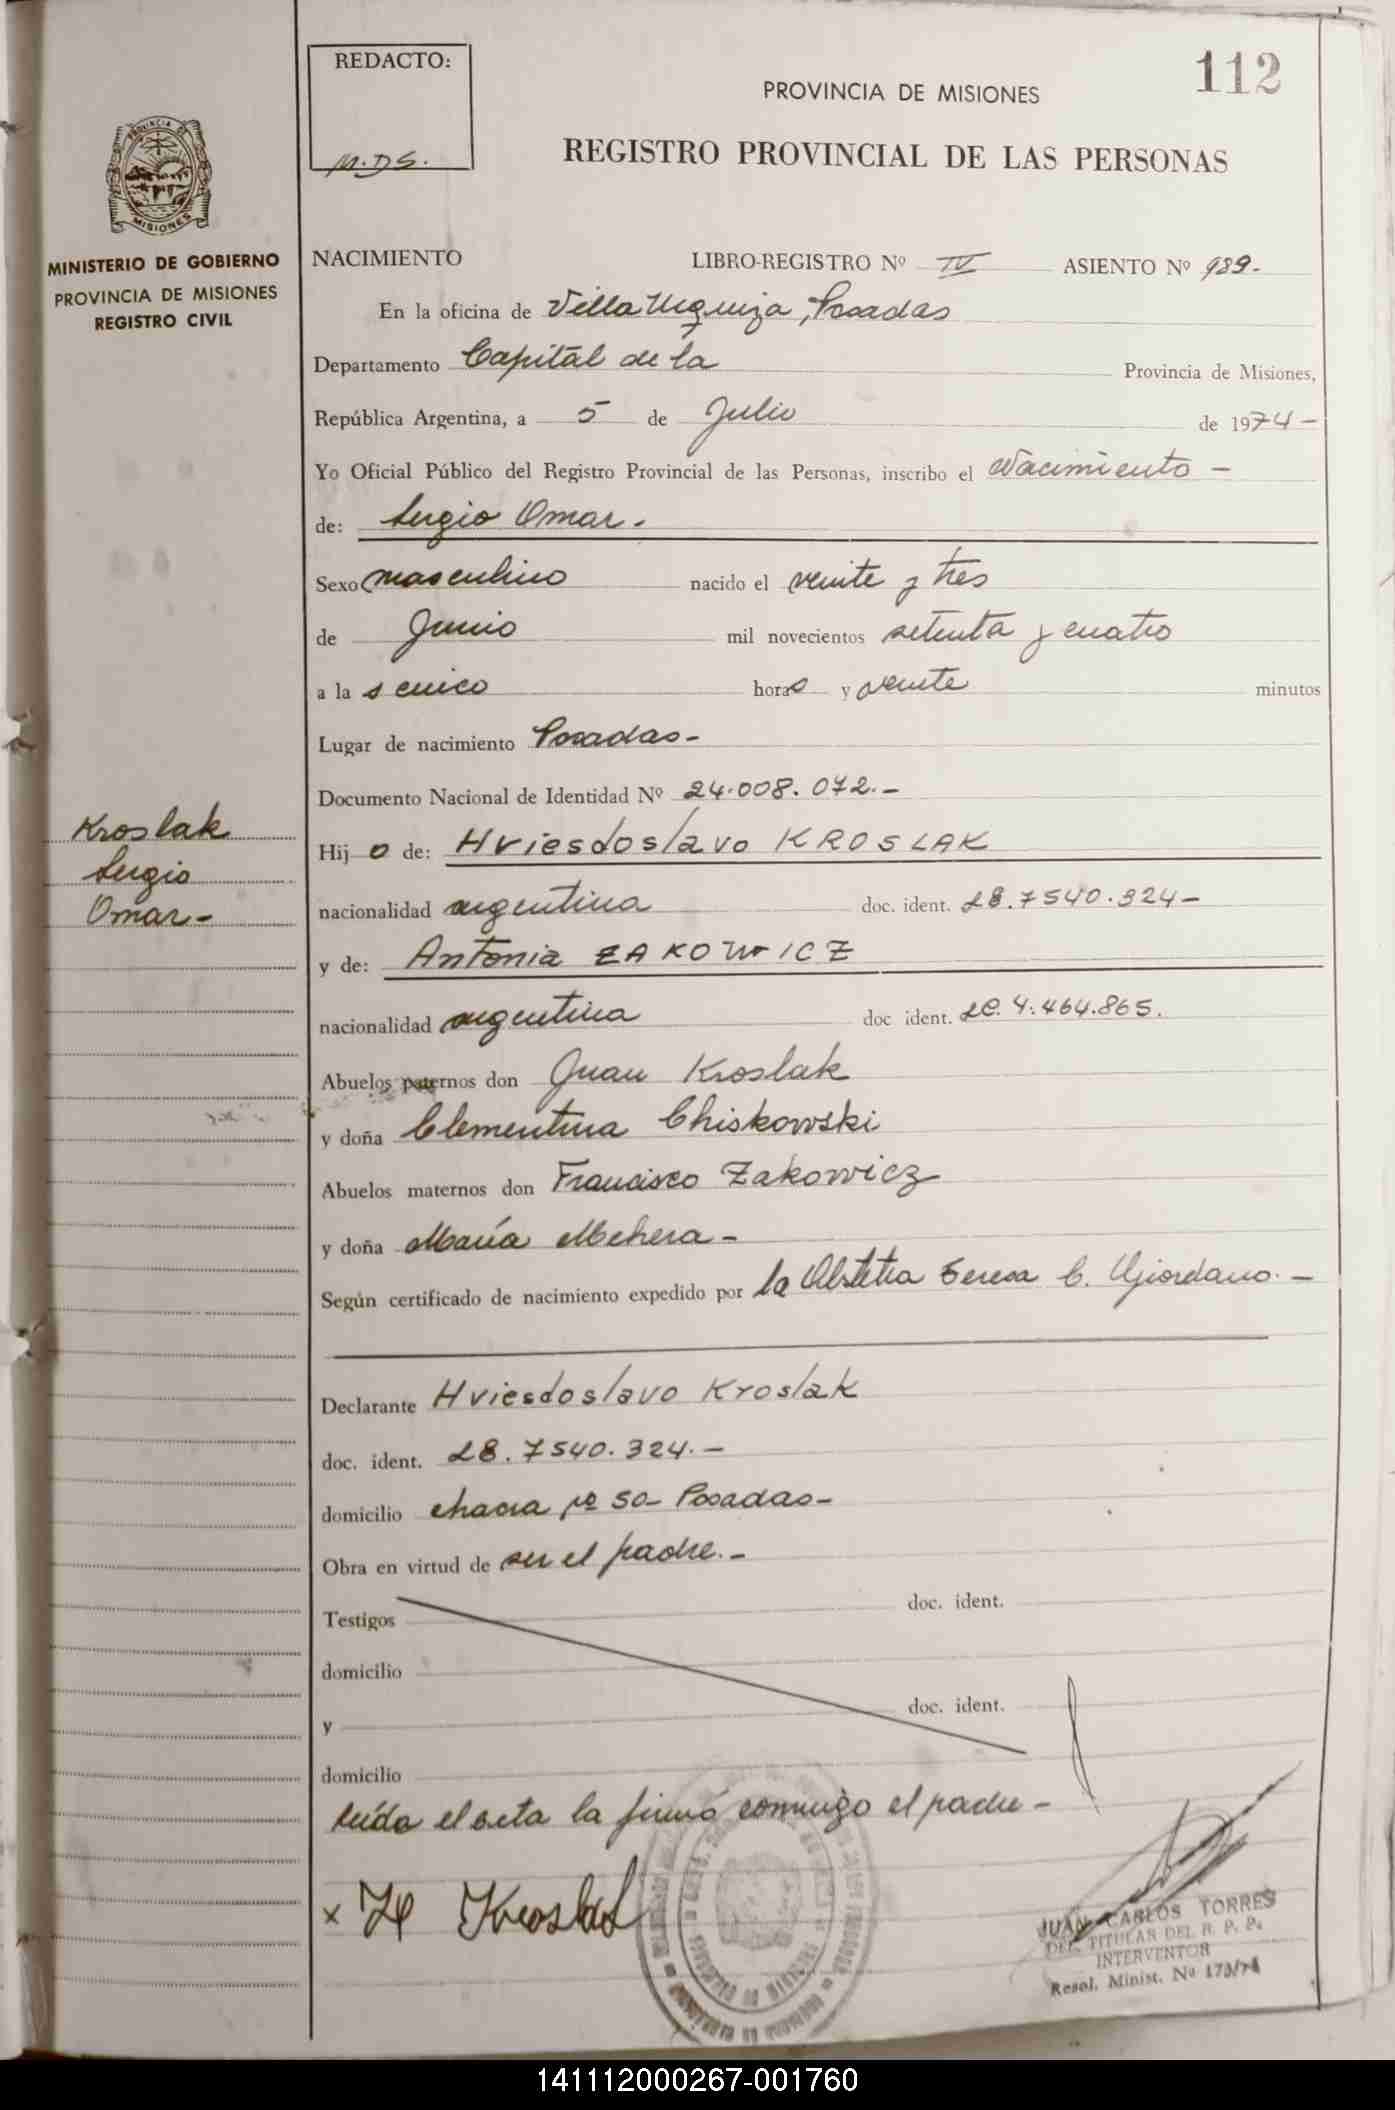 REDACTO:
M.D.S.
112
PROVINCIA DE MISIONES
REGISTRO PROVINCIAL DE LAS PERSONAS
PROVINCIA DE
MISIONES
MINISTERIO DE GOBIERNO
PROVINCIA DE MISIONES
REGISTRO CIVIL
NACIMIENTO LIBRO-REGISTRO Nº IV ASIENTO Nº 989.-
En la oficina de Villa Urquiza, Posadas
Departamento Capital de la Provincia de Misiones,
República Argentina, a 5 de Julio de 1974-
Yo Oficial Público del Registro Provincial de las Personas, inscribo el Nacimiento -
de: Sergio Omar.
Sexo masculino nacido el veinte y tres
de Junio mil novecientos setenta y cuatro
a la s cinco horas y veinte minutos
Lugar de nacimiento Posadas-
Documento Nacional de Identidad Nº 24.008.072.-
Kroslak
Sergio
Omar-
Hij o de: Hviesdoslavo KROSLAK
nacionalidad argentina doc. ident. L8.7540.324-
y de: Antonia ZAKOWICZ
nacionalidad argentina doc ident. LC. 4.464.865.
Abuelos paternos don Juan Kroslak
y doña Clementina Chiskowski
Abuelos maternos don Francisco Zakowicz
y doña María Melhera-
Según certificado de nacimiento expedido por la Obstetra Teresa C. Giordano.-
Declarante Hviesdoslavo Kroslak
doc. ident. L8.7540.324.-
domicilio chacra nº 50- Posadas-
Obra en virtud de ser el padre.-
Testigos doc. ident.
domicilio
y doc. ident.
domicilio
Leída el acta la firmó conmigo el padre-
x H Kroslak
JUAN CARLOS TORRES
DEL. TITULAR DEL R. P. P.
INTERVENTOR
Resol. Minist. Nº 173/74
141112000267-001760